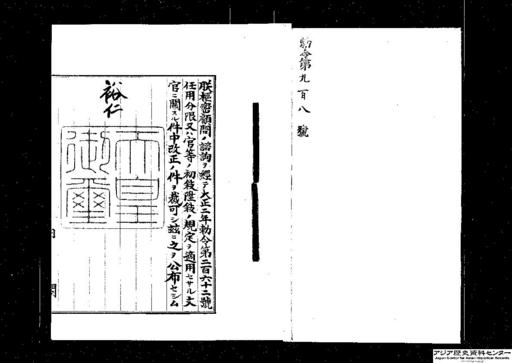 勅令第九百八號
朕樞密顧問ノ諮詢ヲ經テ大正二年勅令第二百六十二號
任用分限又ハ官等ノ初敍陞敍ノ規定ヲ適用セサル文
官ニ關スル件中改正ノ件ヲ裁可シ茲ニ之ヲ公布セシム
裕仁
天皇御璽
内 閣
アジア歴史資料センター
Japan Center for Asian Historical Records